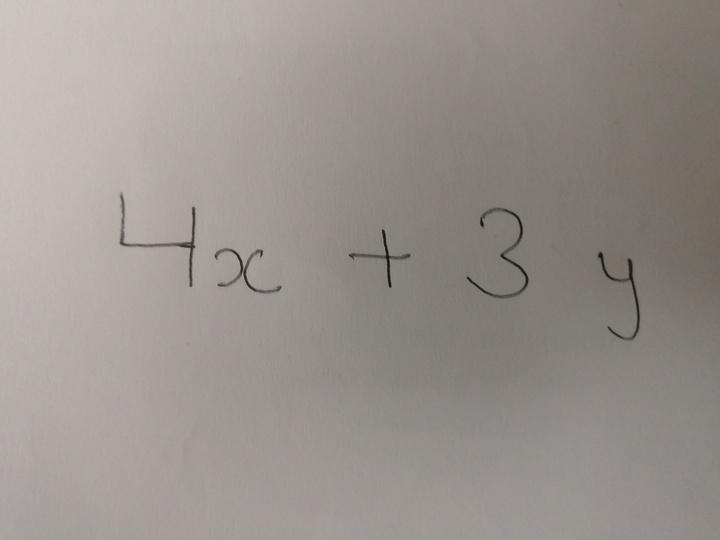 4x + 3 y